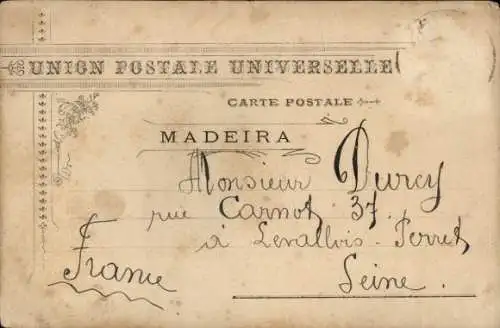 UNION POSTALE UNIVERSELLE
CARTE POSTALE
MADEIRA
Monsieur Durcy
rue Carnot 37
à Levallois-Perret
Seine.
France